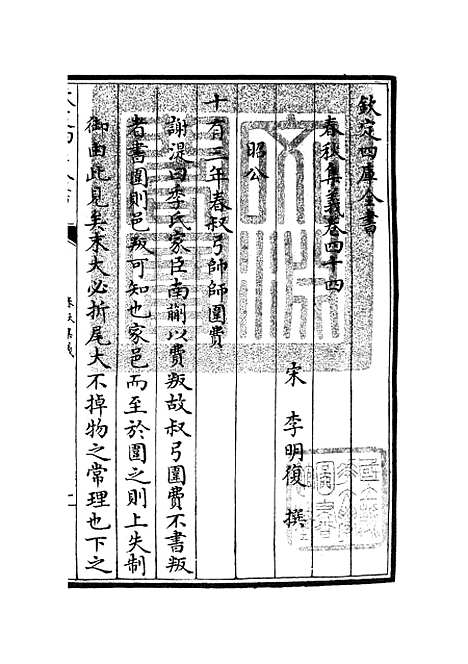 欽定四庫全書
春秋集義卷四十四
宋 李明復 撰
昭公
十有三年春叔弓帥師圍費
謝湜曰季氏家臣南蒯以費叛故叔弓圍費不書叛
者書圍則邑叛可知也家邑而至於圍之則上失制
御由此見矣末大必折尾大不掉物之常理也下之
春秋集義